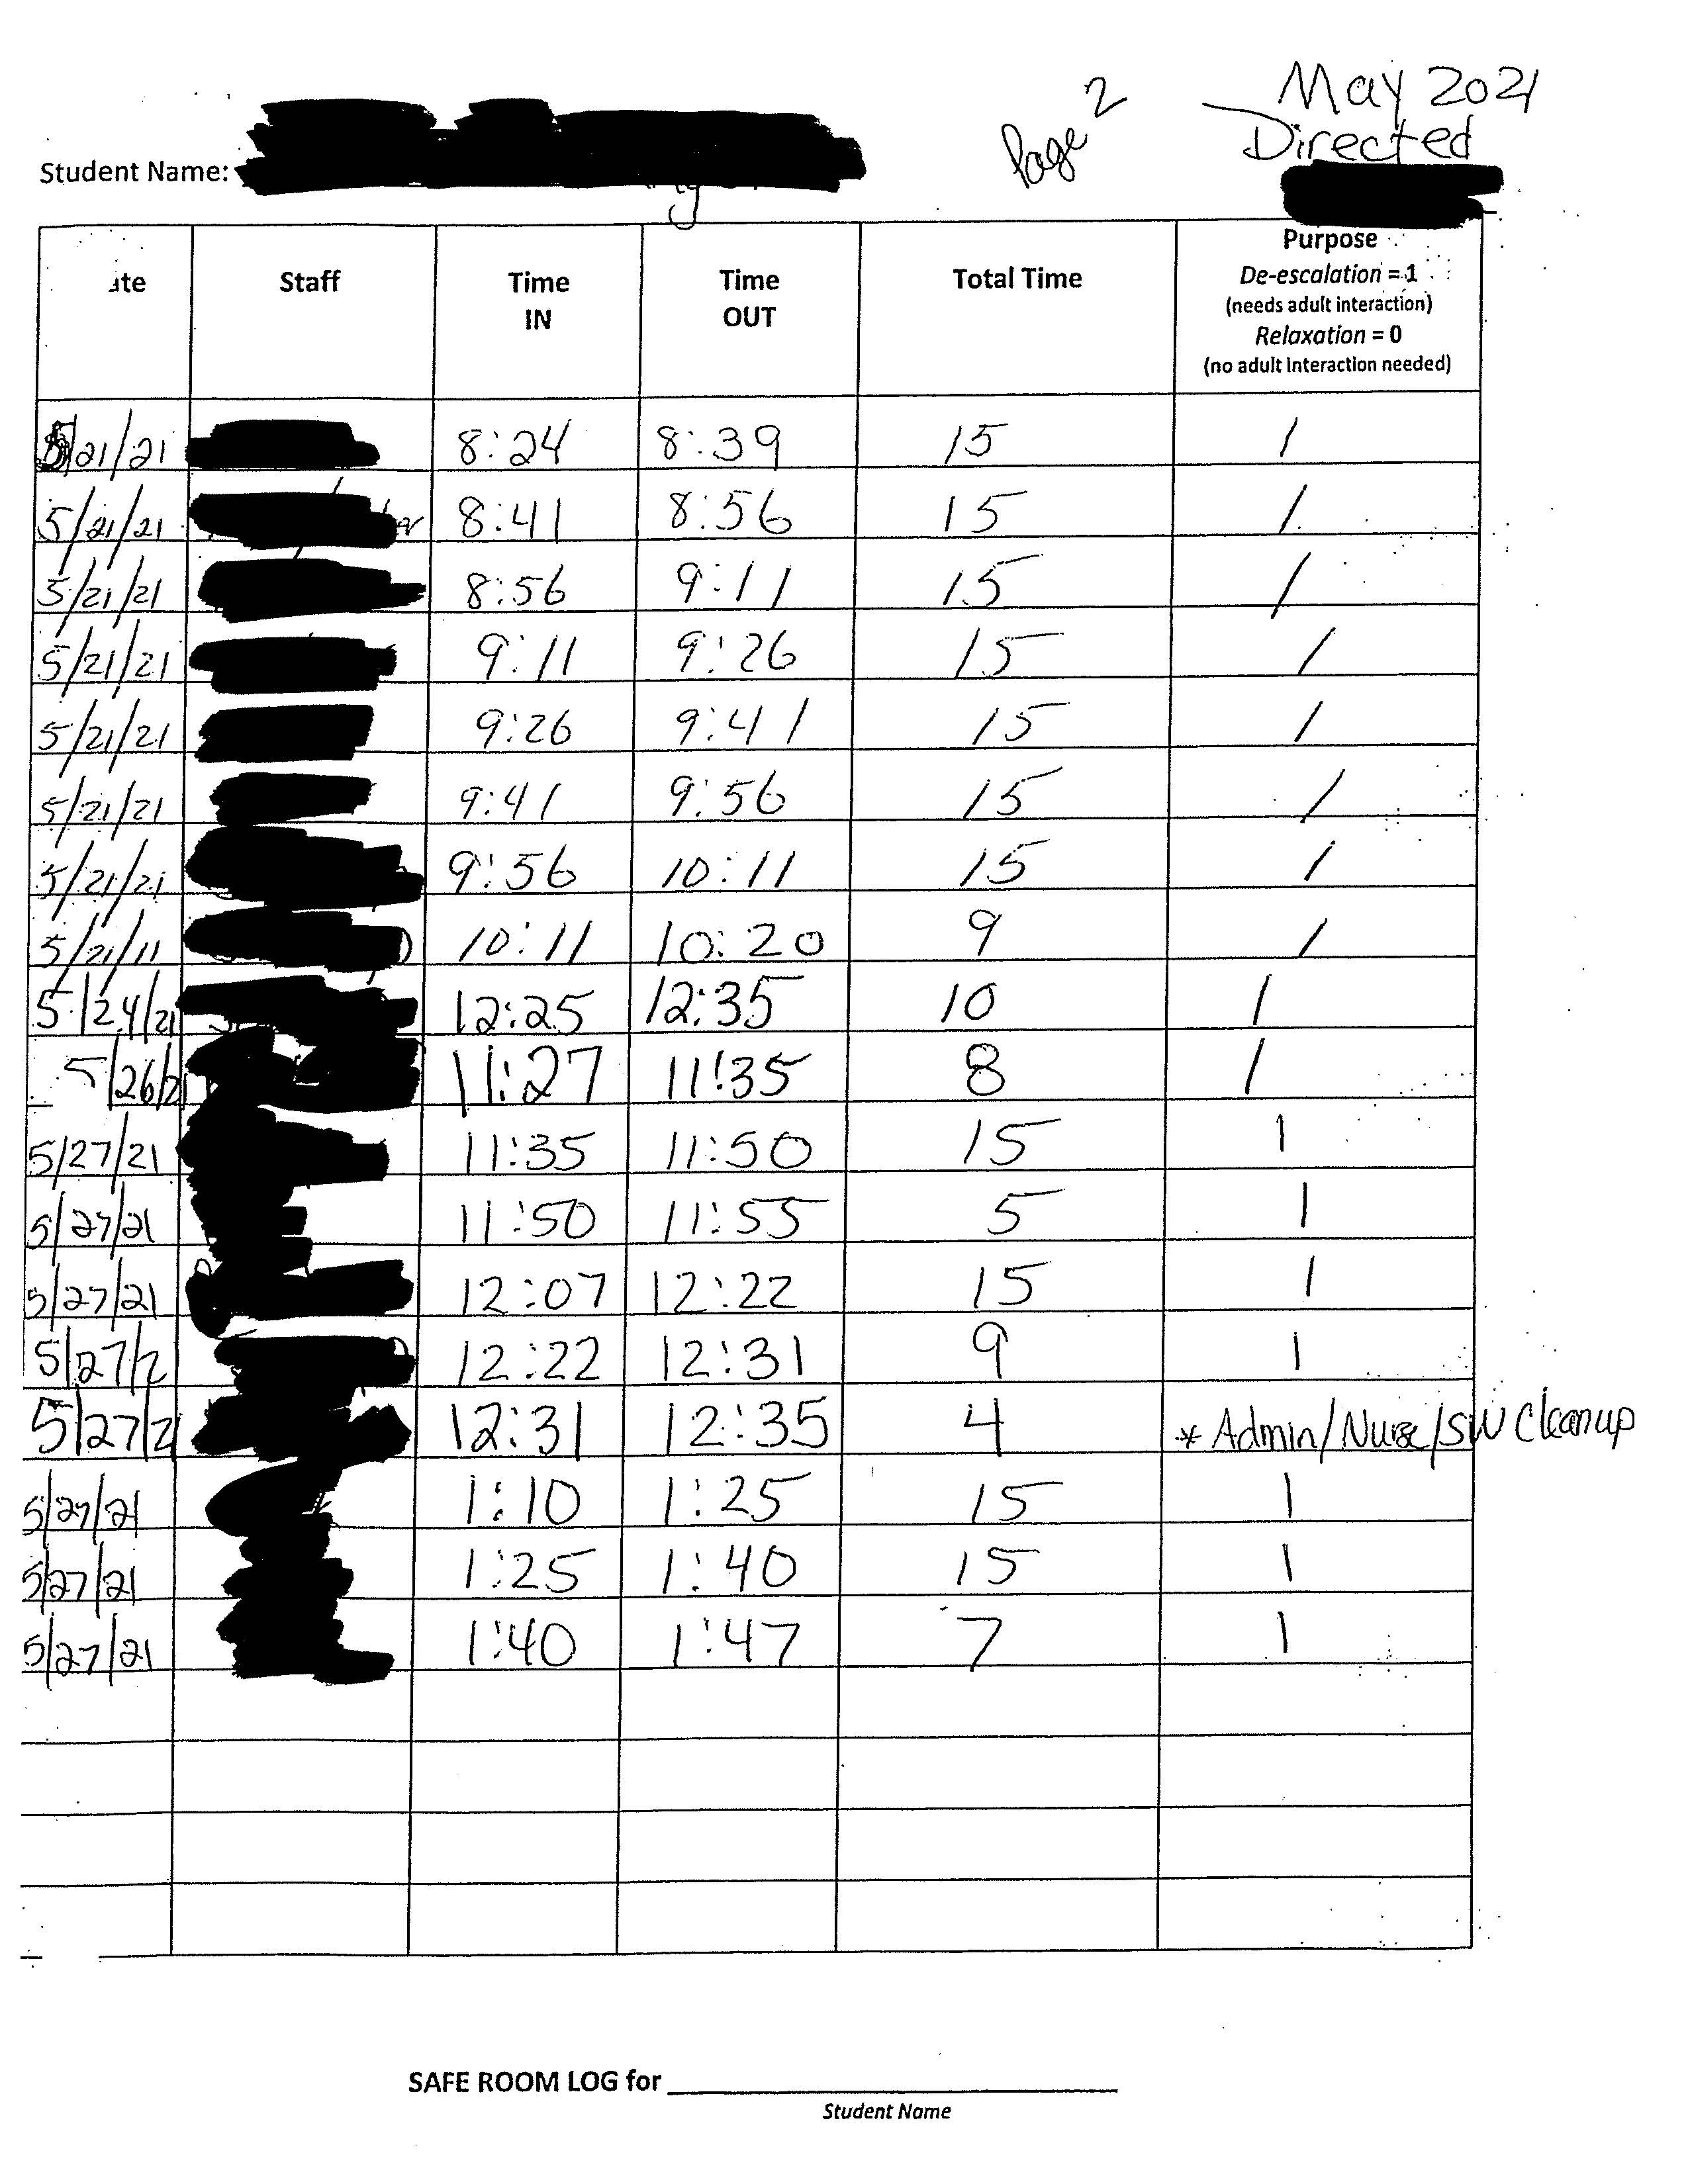 May 2021
Page 2
Directed
Student Name:
ate Staff Time IN Time OUT Total Time Purpose
De-escalation = 1
(needs adult interaction)
Relaxation = 0
(no adult interaction needed)
5/21/21 8:24 8:39 15 1
5/21/21 8:41 8:56 15 1
5/21/21 8:56 9:11 15 1
5/21/21 9:11 9:26 15 1
5/21/21 9:26 9:41 15 1
5/21/21 9:41 9:56 15 1
5/21/21 9:56 10:11 15 1
5/21/11 10:11 10:20 9 1
5/24/21 12:25 12:35 10 1
5/26/21 11:27 11:35 8 1
5/27/21 11:35 11:50 15 1
5/27/21 11:50 11:55 5 1
5/27/21 12:07 12:22 15 1
5/27/2 12:22 12:31 9 1
5/27/21 12:31 12:35 4 * Admin/Nurse/SW Cleanup
5/27/21 1:10 1:25 15 1
5/27/21 1:25 1:40 15 1
5/27/21 1:40 1:47 7 1
SAFE ROOM LOG for
Student Name